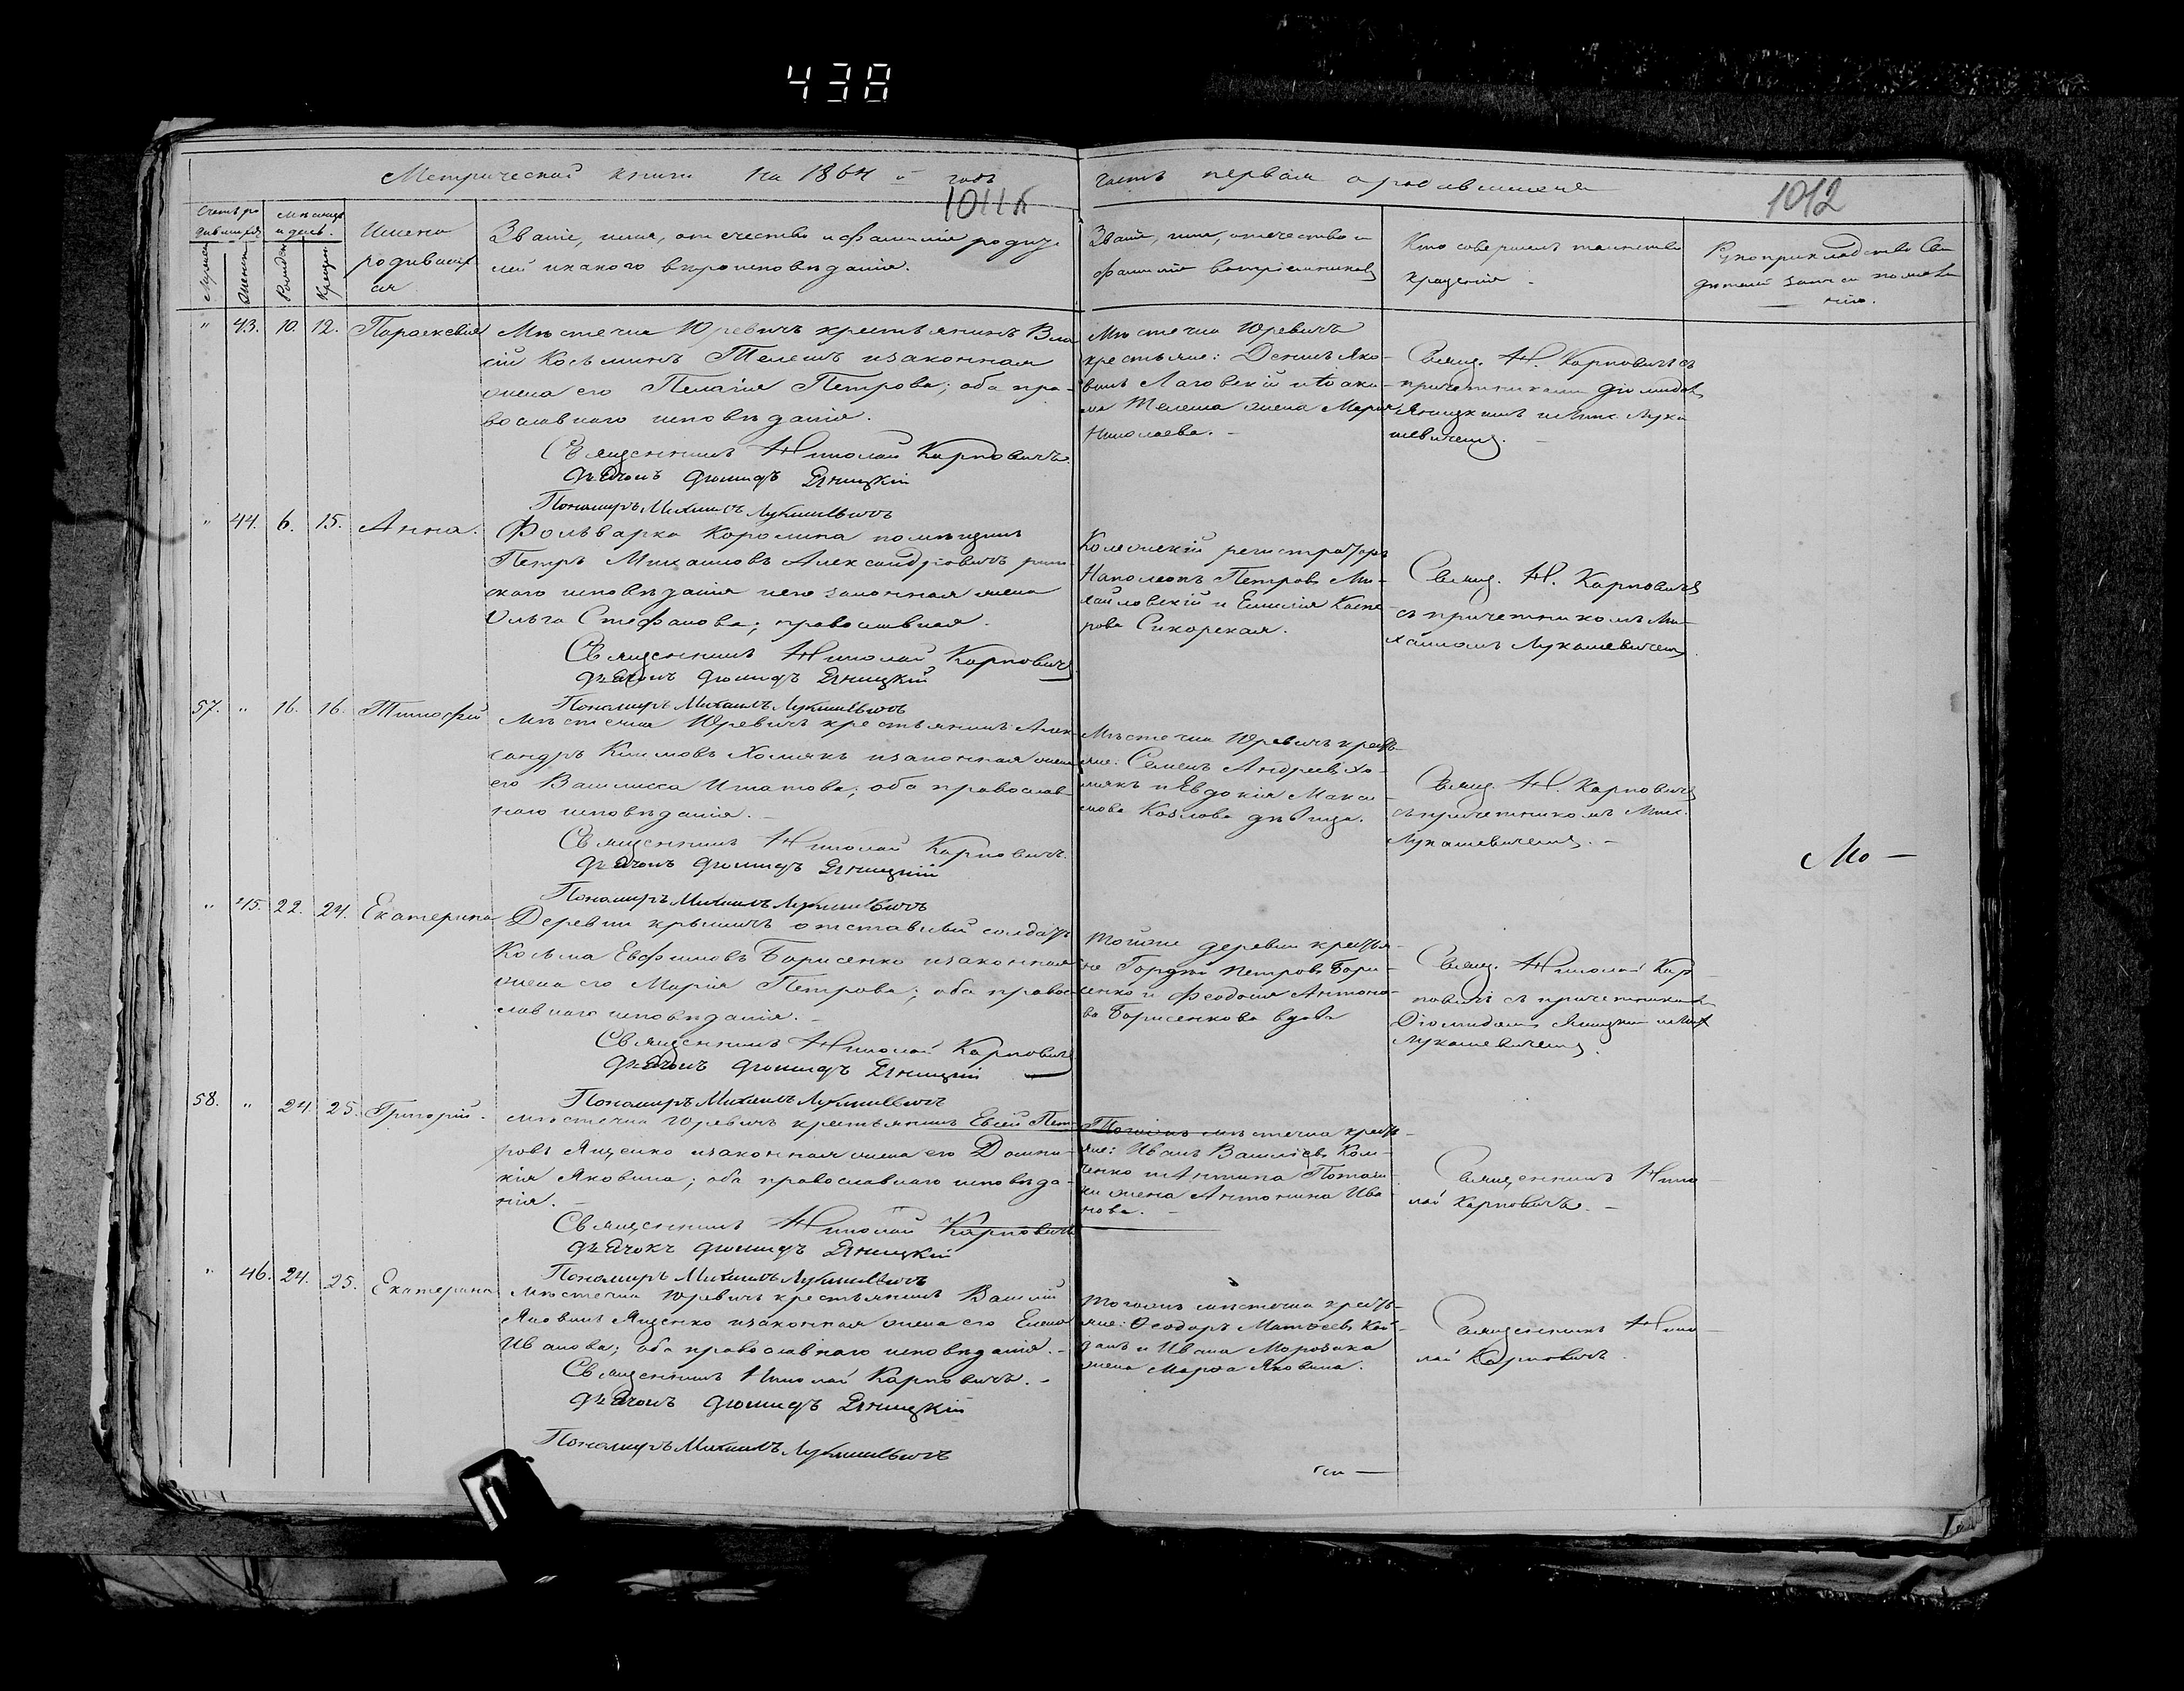 438
Метрической книги на 1864 й годъ
1011б
часть первая о родившихся
1012
Счетъ ро
дившихся
Мѣсяцъ
и день.
Мужеск.
Женска
Рожден
Крещен
Имена
родивших
ся
Званіе, имя, отчество и фамилія родите
лей и какого вѣроисповѣданія.
Званіе, имя, отчество и
фамилія воспріемниковъ
Кто совершалъ таинство
крещенія
Рукоприкладство сви
дѣтелей записи по жела
нію.
" 43. 10. 12. Параскевія
Мѣстечка Юревичъ крестьянинъ Вла
сій Косьминъ Телешъ и законная
жена его Пелагія Петрова; оба пра-
вославнаго исповѣданія.
Священникъ Николай Карповичъ
Дьячокъ Діомидъ Яницкій
Пономарь Михаилъ Лукашевичъ
Мѣстечка Юревичъ
крестьяне: Денисъ Яко-
влевъ Лаговскій и Іоаки-
ма Телеша жена Марія
Николаева.
Свящ. Н. Карповичъ съ
причетниками Діомидомъ
Яницкимъ и Мих. Лука
шевичемъ.
" 44. 6. 15. Анна.
Фольварка Королина помѣщикъ
Петръ Михаиловъ Александровичъ рим-
скаго исповѣданія и его законная жена
Ольга Стефанова; православная.
Священникъ Николай Карповичъ
Дьячокъ Діомидъ Яницкій
Пономарь Михаилъ Лукашевичъ
Колежскій регистраторъ
Наполеонъ Петровъ Ми-
хайловскій и Емилія Каспе-
рова Сикорская.
Свящ. Н. Карповичъ
съ причетникомъ Ми-
хаиломъ Лукашевичемъ.
57. " 16. 16. Тимофей
Мѣстечка Юревичъ крестьянинъ Алек-
сандръ Климовъ Хомякъ и законная жена
его Василисса Игнатова; оба православ-
наго исповѣданія.
Священникъ Николай Карповичъ.
Дьячокъ Діомидъ Яницкій
Пономарь Михаилъ Лукашевичъ
Мѣстечка Юревичъ кресть-
яне: Семенъ Андреевъ Хо-
мякъ и Евдокія Макси-
мова Козлова дѣвица.
Свящ. Н. Карповичъ
съ причетникомъ Мих.
Лукашевичемъ.
Мо —
" 45. 22. 24. Екатерина
Деревни Крышичъ отставный солдатъ
Косьма Евфимовъ Борисенко и законная
жена его Марія Петрова; оба право-
славнаго исповѣданія.
Священникъ Николай Карповичъ
Дьячокъ Діомидъ Яницкій
Пономарь Михаилъ Лукашевичъ
Той же деревни крестья-
не Гордій Петровъ Бори-
сенко и Феодосія Антоно-
ва Борисенкова вдова
Свящ. Николай Кар-
повичъ съ причетниками
Діомидомъ Яницкимъ и Мих
Лукашевичемъ.
58. " 24. 25. Григорій.
Мѣстечка Юревичъ крестьянинъ Евсей Пет-
ровъ Яценко и законная жена его Домни-
кія Яковлева; оба православнаго исповѣда-
нія.
Священникъ Николай Карповичъ
Дьячокъ Діомидъ Яницкій
Пономарь Михаилъ Лукашевичъ
Того же мѣстечка кресть-
яне: Иванъ Василіевъ
и Антипа
жена Антонина Ива-
нова.
Священникъ Нико-
лай Карповичъ.
" 46. 24. 25. Екатерина
Мѣстечка Юревичъ крестьянинъ Василій
Яковлевъ Яценко и законная жена его Елена
Иванова; оба православнаго исповѣданія.
Священникъ Николай Карповичъ.
Дьячокъ Діомидъ Яницкій
Пономарь Михаилъ Лукашевичъ
Того же мѣстечка кресть-
яне: Ѳеодоръ Матѳеевъ Кай-
данъ и Ивана Морозика
жена Марѳа Яковлева.
Священникъ Нико-
лай Карповичъ.